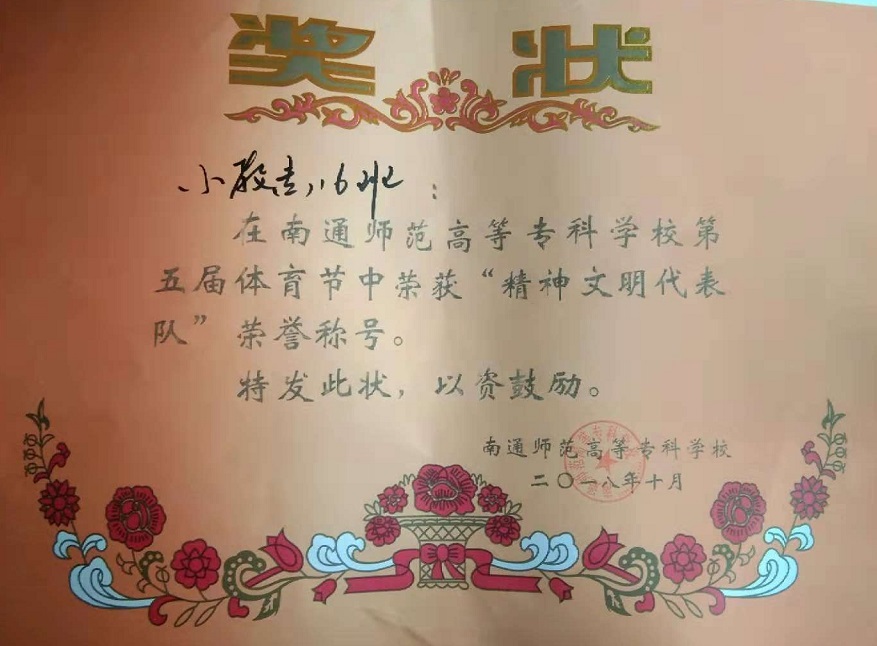 奖状
小教专116班：
在南通师范高等专科学校第
五届体育节中荣获“精神文明代表
队”荣誉称号。
特发此状，以资鼓励。
南通师范高等专科学校
二〇一八年十月